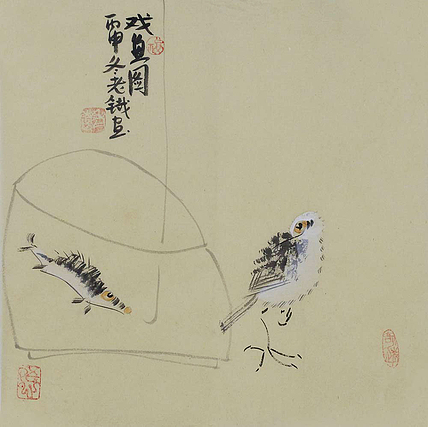 戏鱼图
丙申冬老鐵画